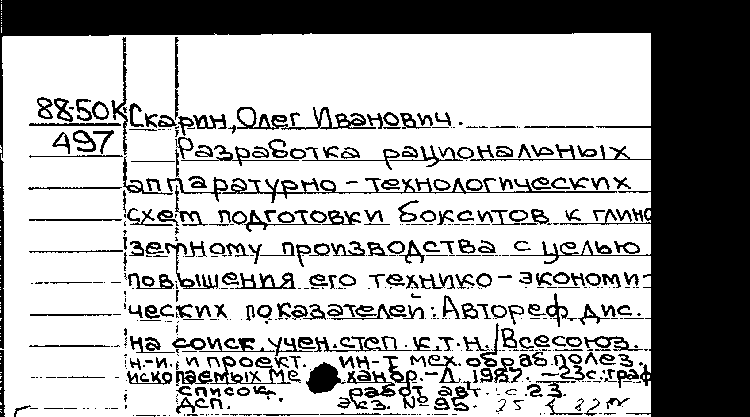 88-50К Скарин, Олег Иванович.
497 Разработка рациональных
аппаратурно-технологических
схем подготовки бокситов к глино
земному производства с целью
повышения его технико-экономи-
ческих показателей: Автореф. дис.
на соиск. учен. степ. к.т.н./Всесоюз.
н-и. и проект. ин-т мех. обраб. полез.
ископаемых Механобр.-Л. 1987. -23с.:граф
список. работ авт.: с. 23
Дсп. экз. №95.